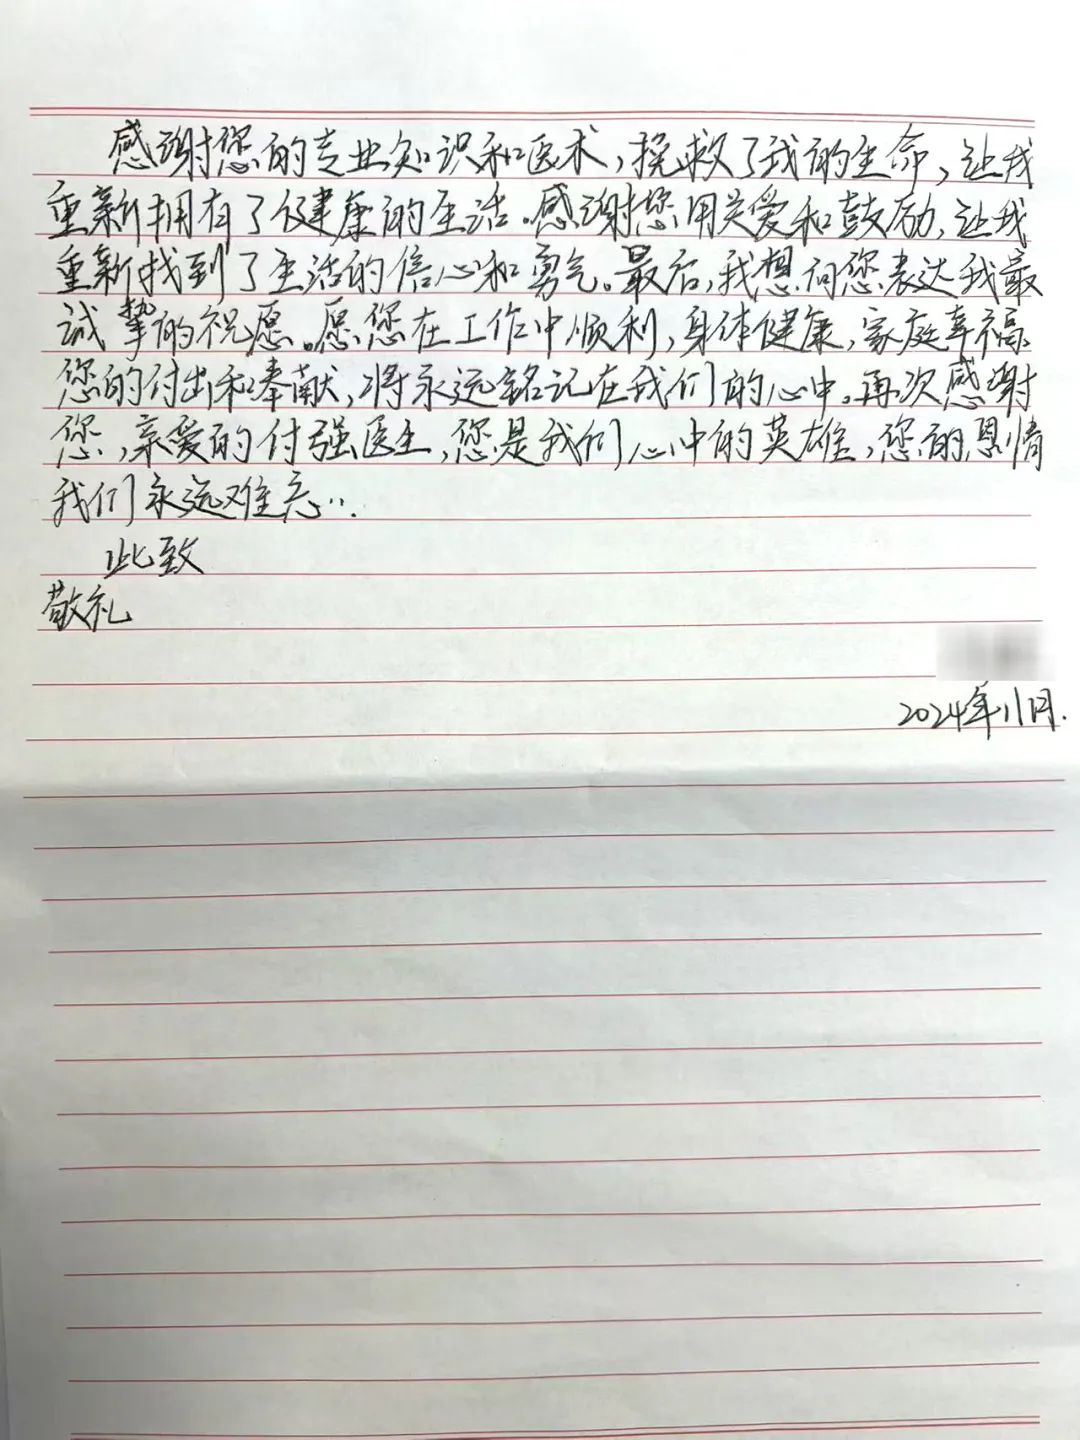 感谢您的专业知识和医术，挽救了我的生命，让我
重新拥有了健康的生活。感谢您用关爱和鼓励，让我
重新找到了生活的信心和勇气。最后，我想向您表达我最
诚挚的祝愿。愿您在工作中顺利，身体健康，家庭幸福。
您的付出和奉献，将永远铭记在我们的心中。再次感谢
您，亲爱的付强医生，您是我们心中的英雄，您的恩情
我们永远难忘…
此致
敬礼
2024年11月.